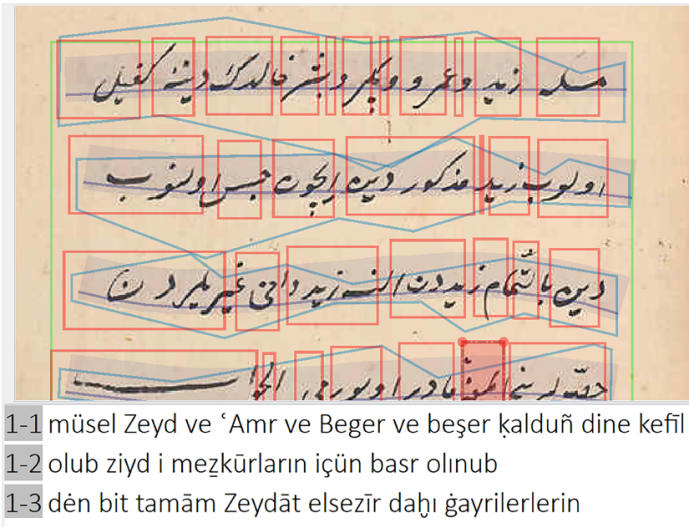 مسله زيد وعمرو وبكر وبشر خالدك دينه كفيل
اولوب زيد مذكور دين ايچون حبس اولنوب
دين بالتمام زيددن السه زيد داخى غيريلردن
حصه لرينى المغه قادر اولورمى الجواب
1-1 müsel Zeyd ve ʿAmr ve Beger ve beşer ḳalduñ dine kefīl
1-2 olub ziyd i meẕkūrların içün basr olınub
1-3 dėn bit tamām Zeydāt elsezīr daḫı ġayrilerlerin